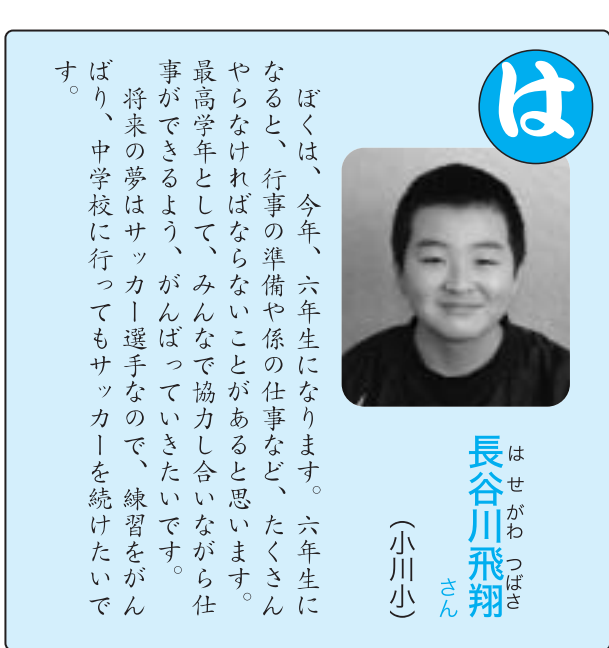 は
長谷川飛翔
はせがわ つばさ
さん
（小川小）
ぼくは、今年、六年生になります。六年生に
なると、行事の準備や係の仕事など、たくさん
やらなければならないことがあると思います。
最高学年として、みんなで協力し合いながら仕
事ができるよう、がんばっていきたいです。
将来の夢はサッカー選手なので、練習をがん
ばり、中学校に行ってもサッカーを続けたいで
す。